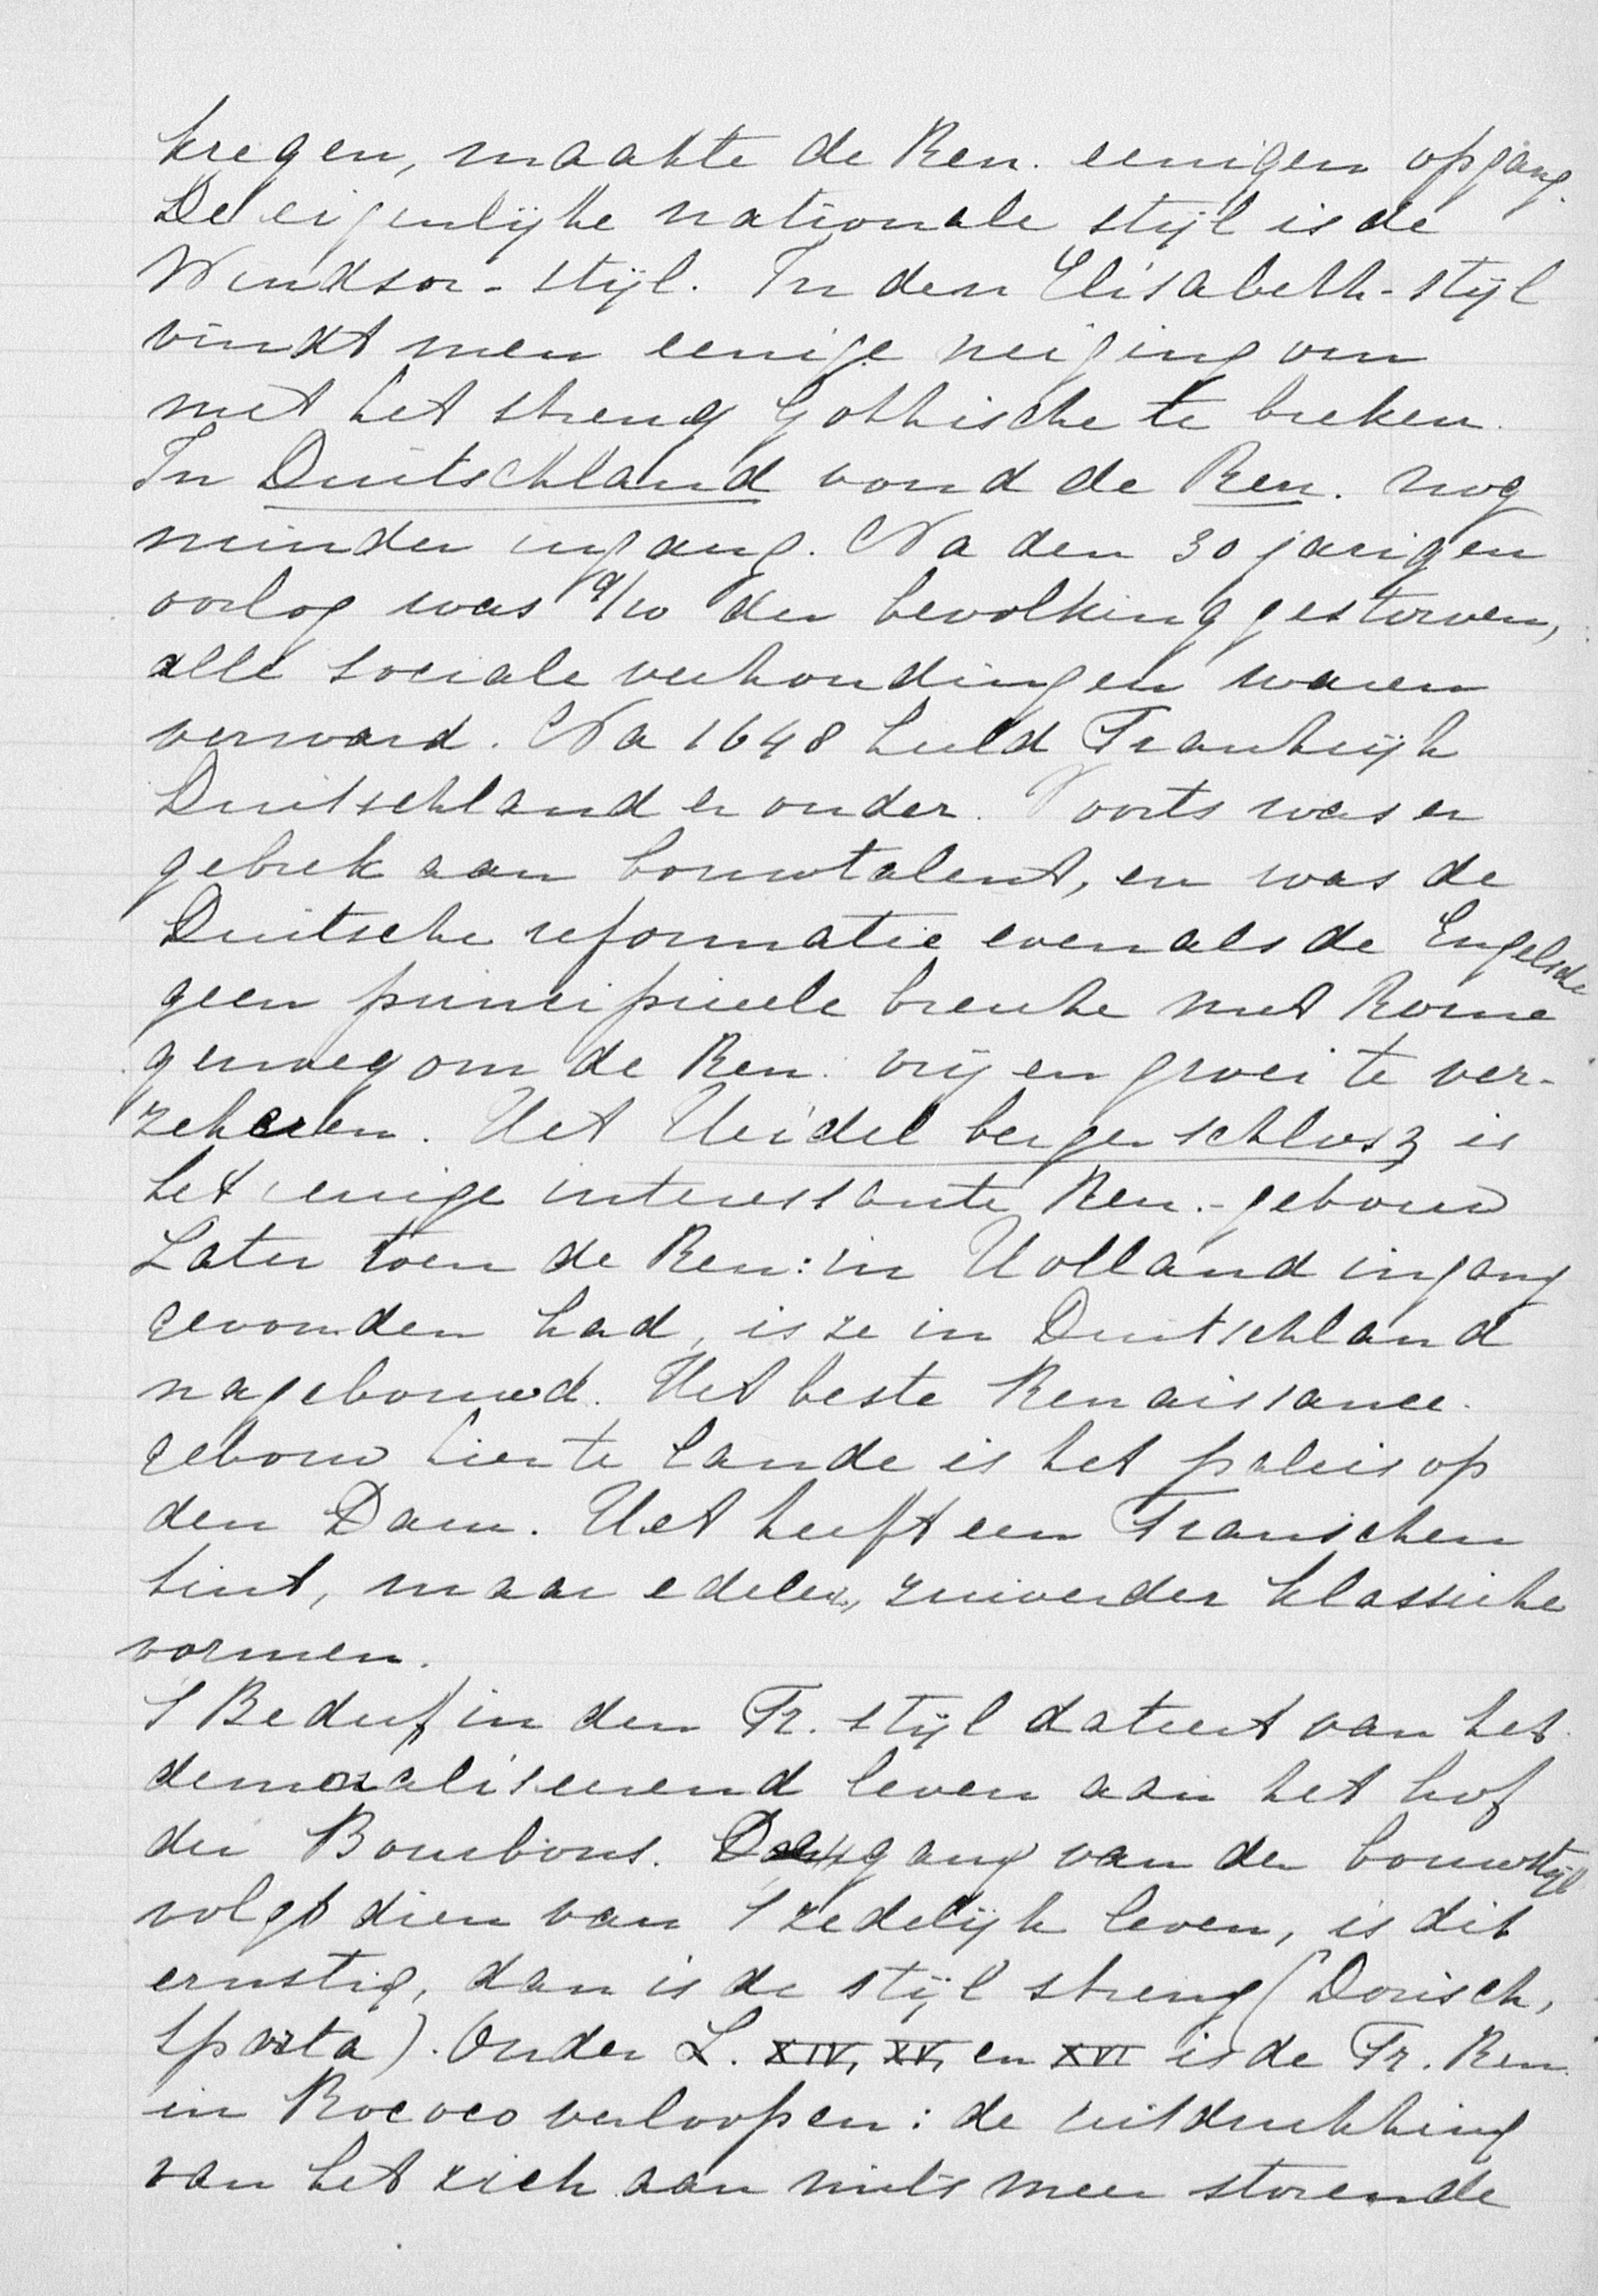 kregen, maakte de Ren. eenigen opgang.
De eigenlijke nationale stijl is de
Windsor-stijl. In den Elisabeth-stijl
vindt men eenige neiging om
met het streng Gothische te breken.
In Duitschland vond de Ren. nog
minder ingang. Na den 30 jarigen
oorlog was 9/10 der bevolking gestorven,
alle sociale verhoudingen waren
verward. Na 1648 hield Frankrijk
Duitschland er onder. Voorts was er
gebrek aan bouwtalent, en was de
Duitsche reformatie evenals de Engelsche
geen principieele breuke met Rome
genoeg om de Ren. vrijen groei te ver-
zekeren. Het Heidelbergerschlosz is
het eenige interessante Ren.-gebouw
Later toen de Ren: in Holland ingang
gevonden had, is ze in Duitschland
nagebouwd. Het beste Renaissance-
gebouw hier te lande is het paleis op
den Dam. Het heeft een Franschen
tint, maar edeler, zuiverder klassieke
vormen.
't Bederf in den Fr. stijl dateert van het
demoraliseerend leven aan het hof
der Bourbons. De gang van den bouwstijl
volgt dien van 't zedelijk leven, is dit
ernstig, dan is de stijl streng (Dorisch,
Sparta). Onder L. XIV, XV, en XVI is de Fr. Ren.
in Rococo verloopen: de uitdrukking
van het zich aan niets meer storende